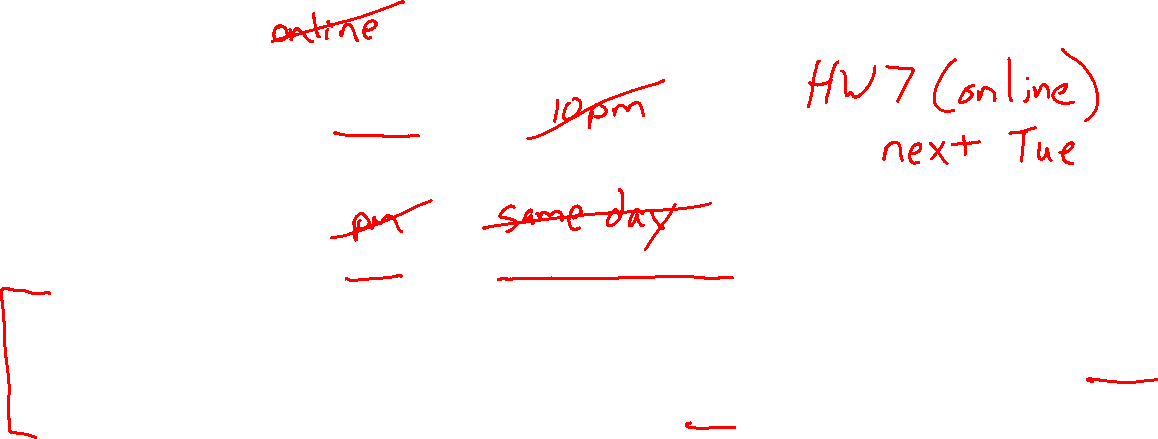 online
10pm
HW7 (online)
next Tue
pm
same day